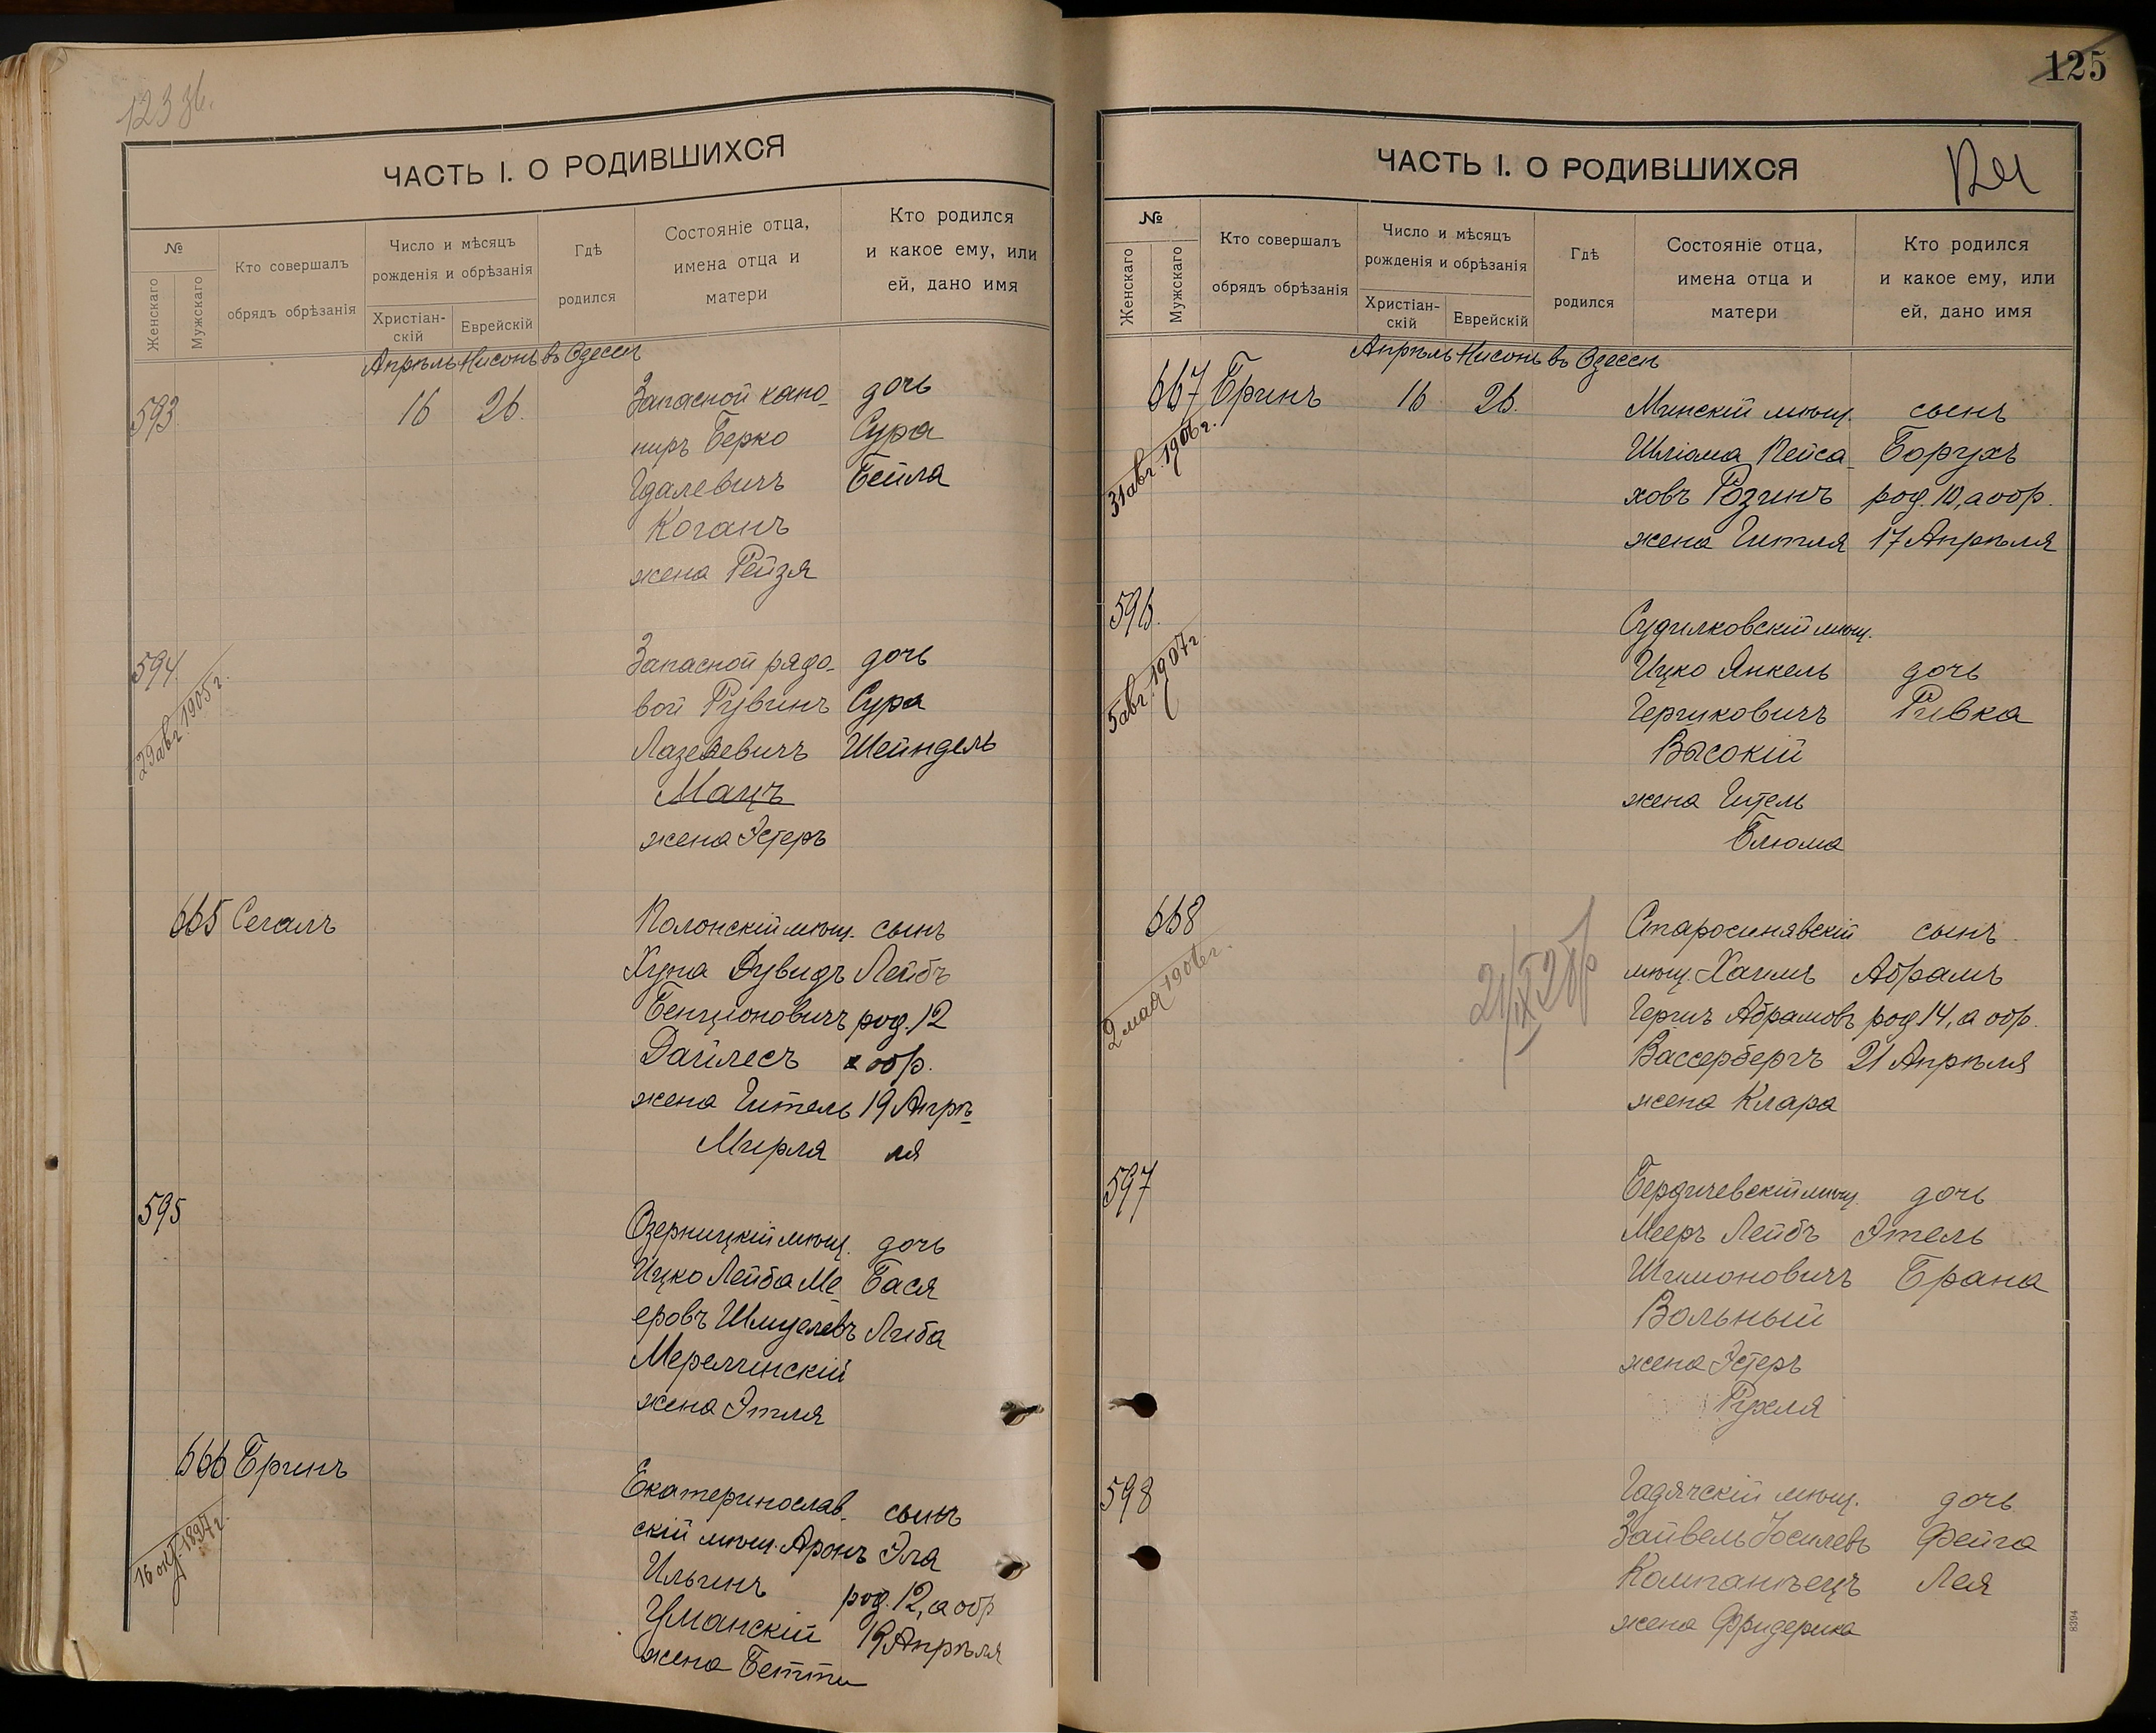 123 зв.
ЧАСТЬ I. О РОДИВШИХСЯ
№
Женскаго
Мужскаго
Кто совершалъ
обрядъ обрѣзанія
Число и мѣсяцъ
рожденія и обрѣзанія
Христіан-
скій
Еврейскій
Гдѣ
родился
Состояніе отца,
имена отца и
матери
Кто родился
и какое ему, или
ей, дано имя
Апрѣль Нисонь въ Одессѣ
593 16 26. Запасной кано- дочь
ниръ Берко Сура
Гдалевичъ Бейла
Коганъ
жена Рейзя
594 Запасной рядо- дочь
29 авг. 1905 г.
вой Рувинъ Сура
Лазеревичъ Шейндель
Мацъ
жена Эстеръ
665 Сегалъ Полонскій мѣщ. сынъ
Хуна Дувидъ Лейбъ
Бенціоновичъ род. 12
Дайлесъ а обр.
жена Гитель 19 Апрѣ-
Мирля ля
595 Озерницкій мѣщ. дочь
Ицко Лейба Ме- Бася
еровъ Шмулевъ Либа
Меречинскій
жена Этля
666 Бринъ Екатеринослав- сынъ
16 окт. 1897 г.
скій мѣщ. Аронъ Эля
Ильинъ род. 12, а обр
Уманскій 19 Апрѣля
жена Бетти
125
ЧАСТЬ I. О РОДИВШИХСЯ
№
Женскаго
Мужскаго
Кто совершалъ
обрядъ обрѣзанія
Число и мѣсяцъ
рожденія и обрѣзанія
Христіан-
скій
Еврейскій
Гдѣ
родился
Состояніе отца,
имена отца и
матери
Кто родился
и какое ему, или
ей, дано имя
Апрѣль Нисонь въ Одессѣ
667 Бринъ 16 26. Минскій мѣщ. сынъ
31 авг. 1906 г.
Шлiома Пейса- Борухъ
ховъ Розинъ род. 10, а обр.
жена Гитля 17 Апрѣля
596. Судилковскій мѣщ.
5 авг. 1907 г.
Ицко Янкель дочь
Гершковичъ Ривка
Высокій
жена Гитель
Блюма
668 Старосинявскій сынъ
2 мая 1906 г.
мѣщ. Хаимъ Абрамъ
Гершъ Абрамовъ род 14, а обр.
Вассербергъ 21 Апрѣля
жена Клара
597 Бердичевскій мѣщ. дочь
Мееръ Лейбъ Этель
Шимоновичъ Брана
Вольный
жена Эстеръ
Рухля
598 Гадячскій мѣщ. дочь
Зайвель Іосилевъ Фейга
Компанѣецъ Лея
жена Фридерика
8394